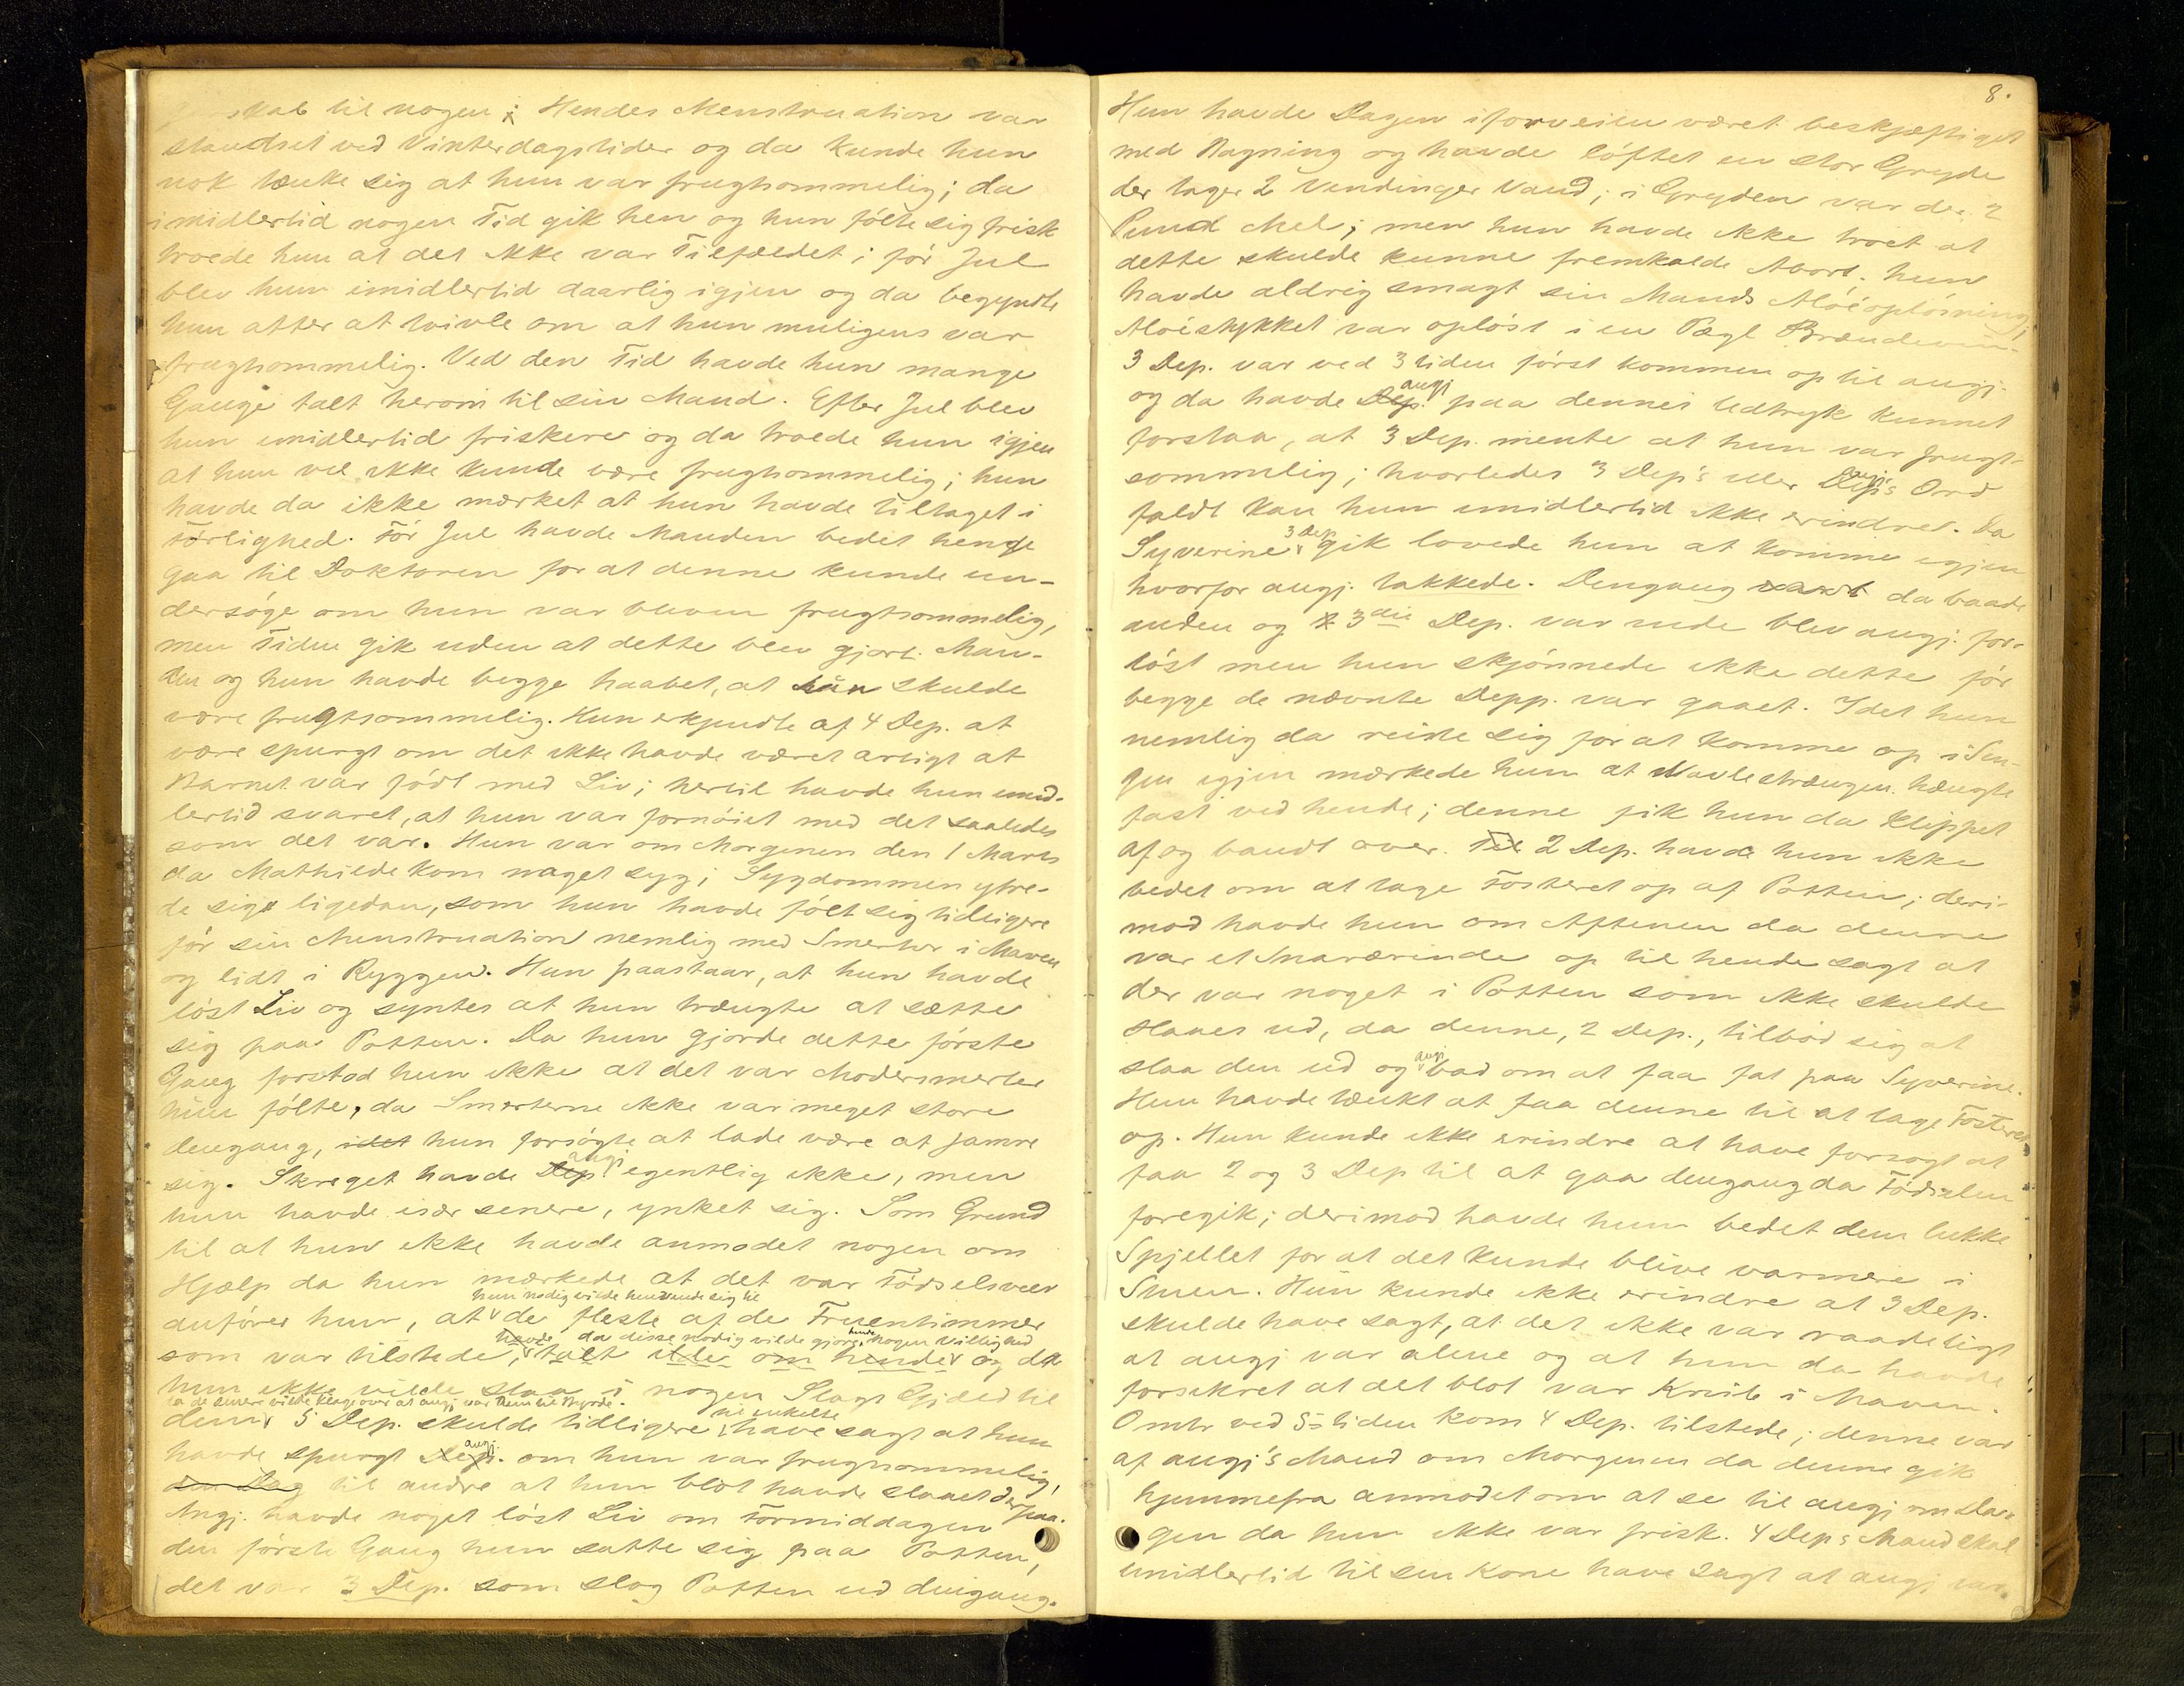 skab til nogen; Hendes Menstruation var
standset ved Vinterdagstider og da kunde hun
nok tænke sig at hun var frugtsommelig; da
imidlertid nogen Tid gik hen og hun følte sig frisk
troede hun at det ikke var Tilfældet; før Jul
blev hun imidlertid daarlig igjen og da begyndte
hun atter at tvivle om at hun muligens var
frugtsommelig. Ved den Tid havde hun mange
Gange talt herom til sin Mand. Efter Jul blev
hun imidlertid friskere og da troede hun igjen
at hun vel ikke kunde være frugtsommelig; hun
havde da ikke mærket at hun havde tiltaget i
Førlighed. Før Jul havde Manden bedet hende
gaa til Doktoren for at denne kunde un-
dersøge om hun var bleven frugtsommelig,
men Tiden gik uden at dette blev gjort. Man-
den og hun havde begge haabet, at hun skulde
være frugtsommelig. Hun erkjendte af 4 Dep. at
være spurgt om det ikke havde været artigt at
Barnet var født med Liv; hertil havde hun imid-
lertid svaret, at hun var fornøiet med det saaledes
som det var. Hun var om Morgenen den 1 Marts
da Mathilde kom noget syg; Sygdommen ytre-
de sig ligedan, som hun havde følt sig tidligere
før sin Menstruation nemlig med Smerter i Maven
og lidt i Ryggen. Hun paastaar, at hun havde
løst Liv og syntes at hun trængte at sætte
sig paa Potten. Da hun gjorde dette første
Gang forstod hun ikke at det var Modersmerter
hun følte, da Smerterne ikke var meget store
dengang, idet hun forsøgte at lade være at jamre
sig. Skreget havde Dep angj egentlig ikke, men
hun havde især senere, ynket sig. Som Grund
til at hun ikke havde anmodet nogen om
Hjælp da hun mærkede at det var Fødselsveer
anfører hun, at hun nødig vilde henvende sig til de fleste af de Fruentimmer
som var tilstede, havde talt ilde om hende da disse nødig vilde gjøre hende nogen Villighed og da
hun ikke vilde staa i nogen Slags Gjæld til
dem da de senere vilde klage over at angj var dem til Byrde. 5 Dep. skulde tidligere til enkelte have sagt at hun
havde spurgt Dep. angj. om hun var frugtsommelig,
en Dag til andre at hun blot havde slaaet derpaa.
Angj. havde noget løst Liv om Formiddagen
den første Gang hun satte sig paa Potten,
det var 3 Dep. som slog Potten ud dengang.
8.
Hun havde Dagen iforveien været beskjæftiget
med Bagning og havde løftet en stor Gryde
der tager 2 Vandinger Vand; i Gryden var der 2
Pund Mel; men hun havde ikke troet at
dette skulde kunne fremkalde Abort. hun
havde aldrig smagt sin Mands Aloéopløsning;
Aloéstykket var opløst i en Pægl Brændevin.
3 Dep. var ved 3 tiden først kommen op til angj.
og da havde Dep. angj paa dennes Udtryk kunnet
forstaa, at 3 Dep. mente at hun var frugt-
sommelig; hvorledes 3 Dep's eller Dep's angj's Ord
faldt kan hun imidlertid ikke erindre. Da
Syverine 3 Dep gik lovede hun at komme igjen
hvorfor angj. takkede. Dengang da baade
anden og 3die Dep. var inde blev angj. for-
løst men hun skjønnede ikke dette før
begge de nævnte Depp. var gaaet. Idet hun
nemlig da reiste sig for at komme op i Sen-
gen igjen mærkede hun at Navlestrængen hængte
fast ved hende; denne fik hun da klippet
af og bandt over. Til 2 Dep. havde hun ikke
bedet om at tage Fosteret op af Potten; deri-
mod havde hun om Aftenen da denne
var et Snarærinde op til hende sagt at
der var noget i Potten som ikke skulde
slaaes ud, da denne, 2 Dep., tilbød sig at
slaa den ud og angj bad om at faa fat paa Syverine.
Hun havde tænkt at faa denne til at tage Fosteret
op. Hun kunde ikke erindre at have forsøgt at
faa 2 og 3 Dep til at gaa dengang da Fødselen
foregik; derimod havde hun bedet dem lukke
Spjellet for at det kunde blive varmere i
Stuen. Hun kunde ikke erindre at 3 Dep.
skulde have sagt, at det ikke var raadeligt
at angj var alene og at hun da havde
forsikret at det blot var Knib i Maven.
Omtr ved 5-tiden kom 4 Dep. tilstede; denne var
af angj's Mand om Morgenen da denne gik
hjemmefra anmodet om at se til angj om Da-
gen da hun ikke var frisk. 4 Deps Mand skal
imidlertid til sin Kone have sagt at angj var